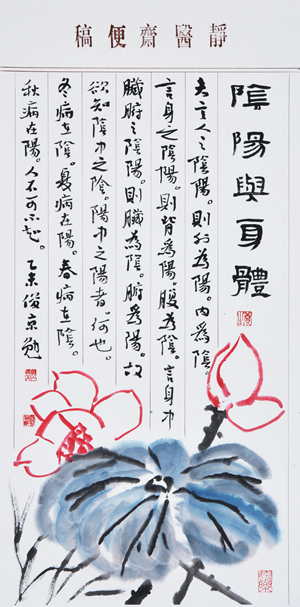 靜醫齋便稿
陰陽與身體
夫言人之陰陽。則外為陽。內為陰。
言身之陰陽。則背為陽。腹為陰。言身中
臟腑之陰陽。則臟為陰。腑為陽。故
欲知陰中之陰。陽中之陽者。何也。
冬病在陰。夏病在陽。春病在陰。
秋病在陽。人不可不知。乙未俊京勉